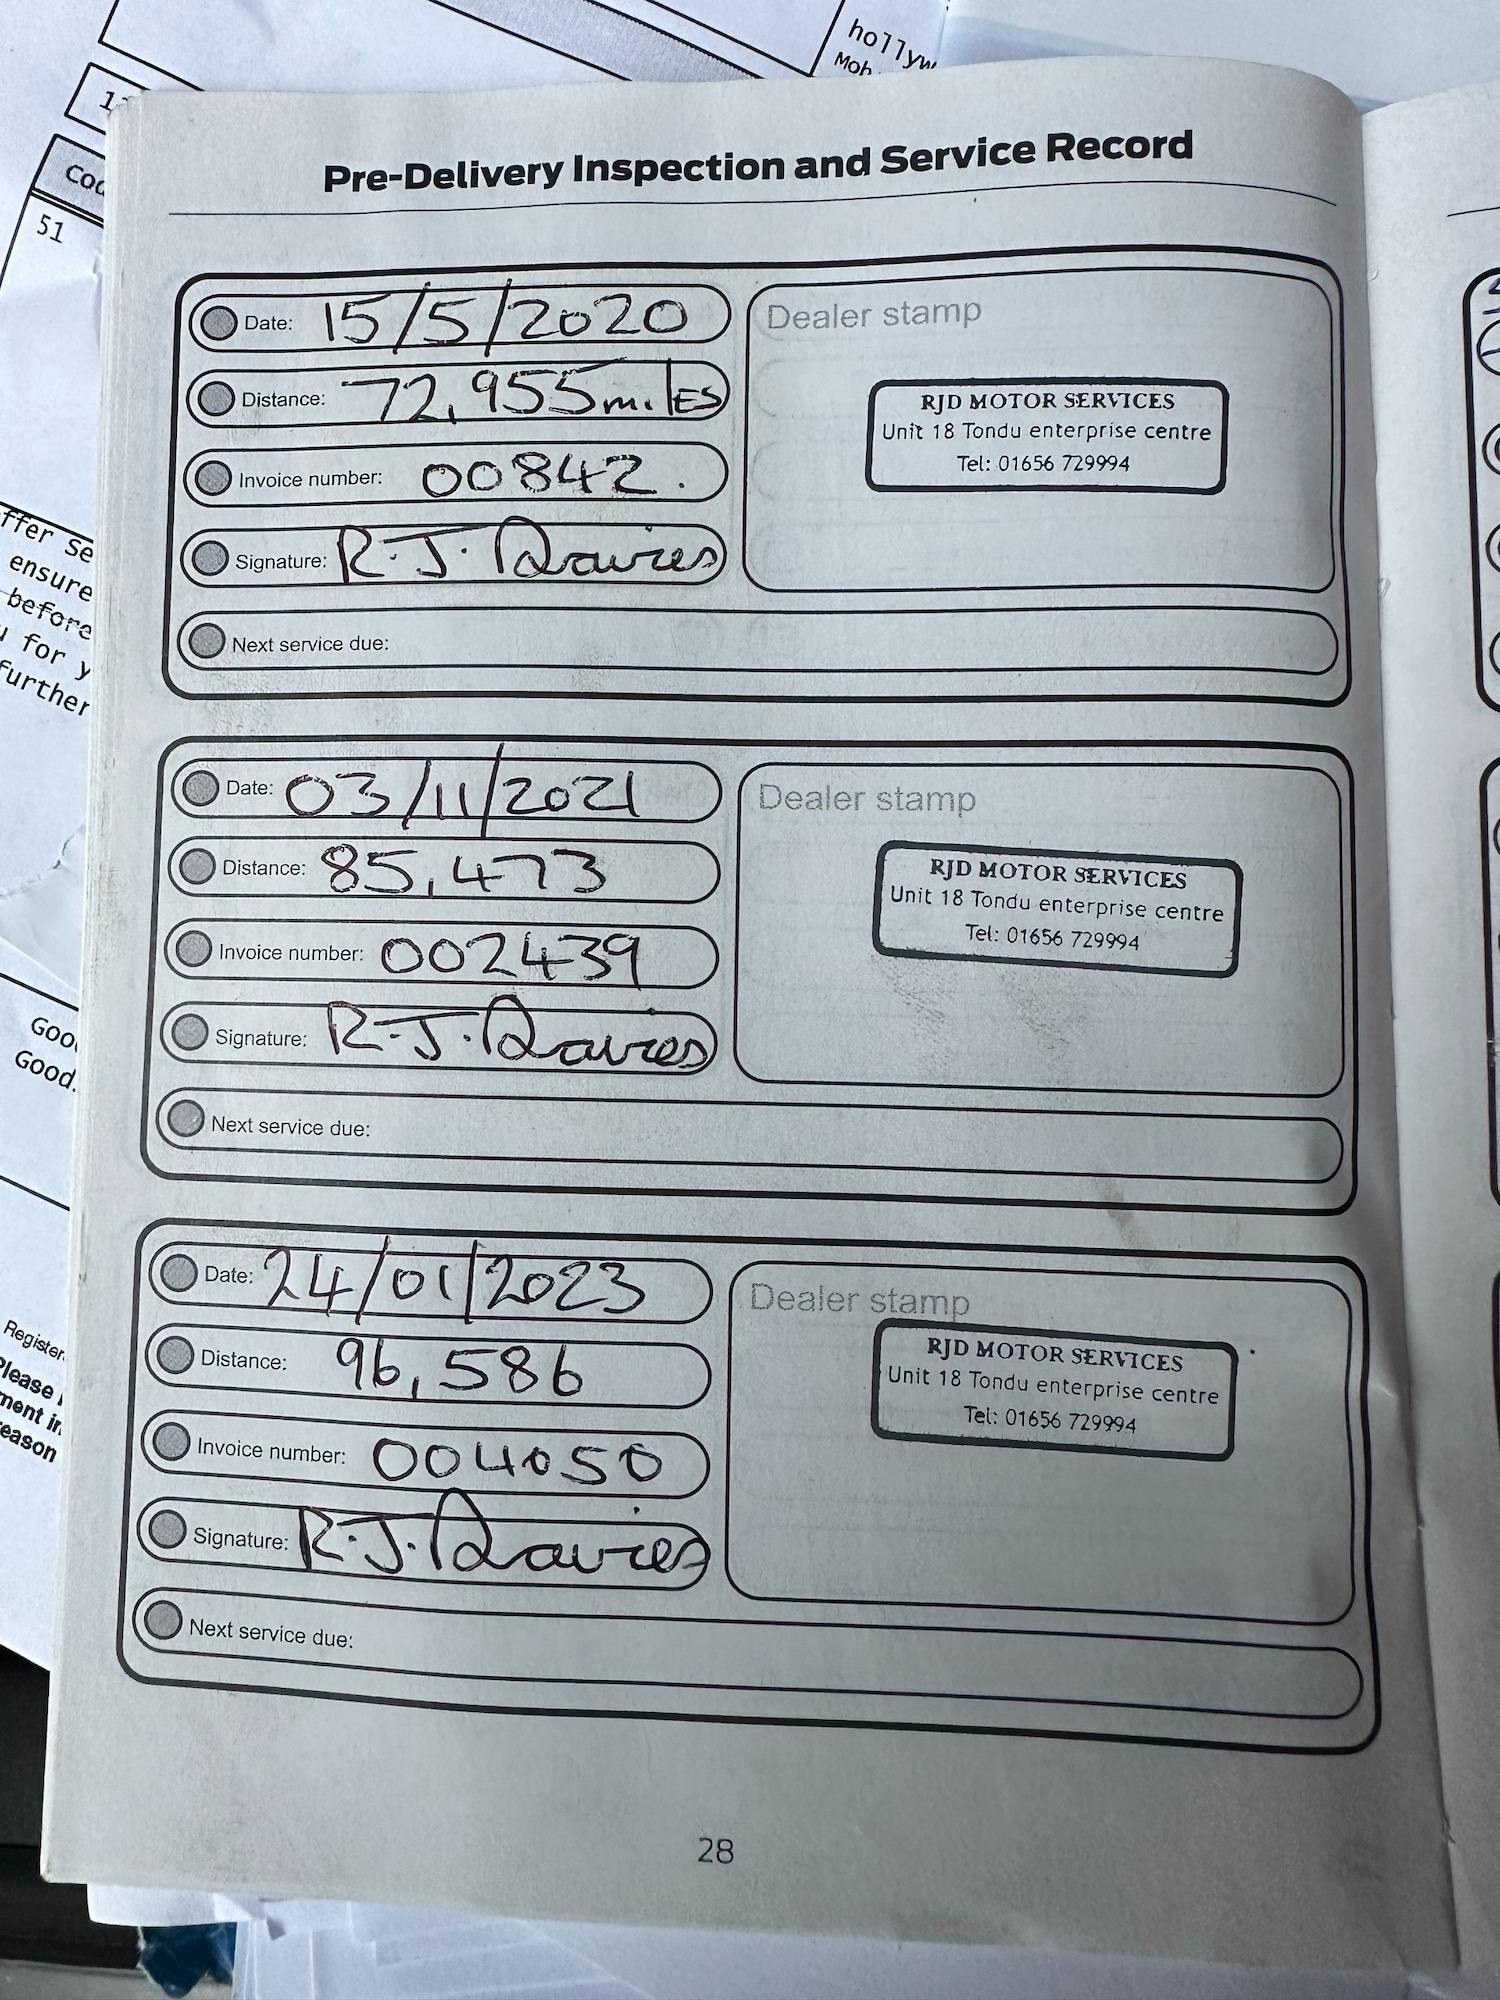 hollyw
Mob
Cod
51
ffer Se
ensure
before
u for y
further
Good
Good.
Register
Please
ment in
eason
Pre-Delivery Inspection and Service Record
Date: 15/5/2020
Distance: 72,955 miles
Invoice number: 00842.
Signature: R.J. Davies
Next service due:
Dealer stamp
RJD MOTOR SERVICES
Unit 18 Tondu enterprise centre
Tel: 01656 729994
Date: 03/11/2021
Distance: 85,473
Invoice number: 002439
Signature: R.J. Davies
Next service due:
Dealer stamp
RJD MOTOR SERVICES
Unit 18 Tondu enterprise centre
Tel: 01656 729994
Date: 24/01/2023
Distance: 96,586
Invoice number: 004050
Signature: R.J. Davies
Next service due:
Dealer stamp
RJD MOTOR SERVICES
Unit 18 Tondu enterprise centre
Tel: 01656 729994
28